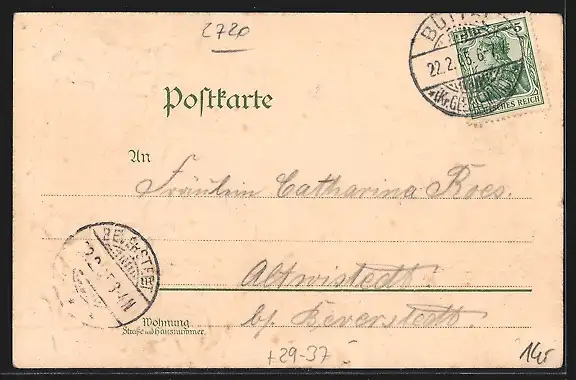 2720
5
22.2.05.6-7N
DEUTSCHES REICH
Postkarte
An
Fräulein Catharina Roes.
BEVERSTEDT
Altwistedt.
b/ Beverstedt.
Wohnung
Straße und Hausnummer
+29-37